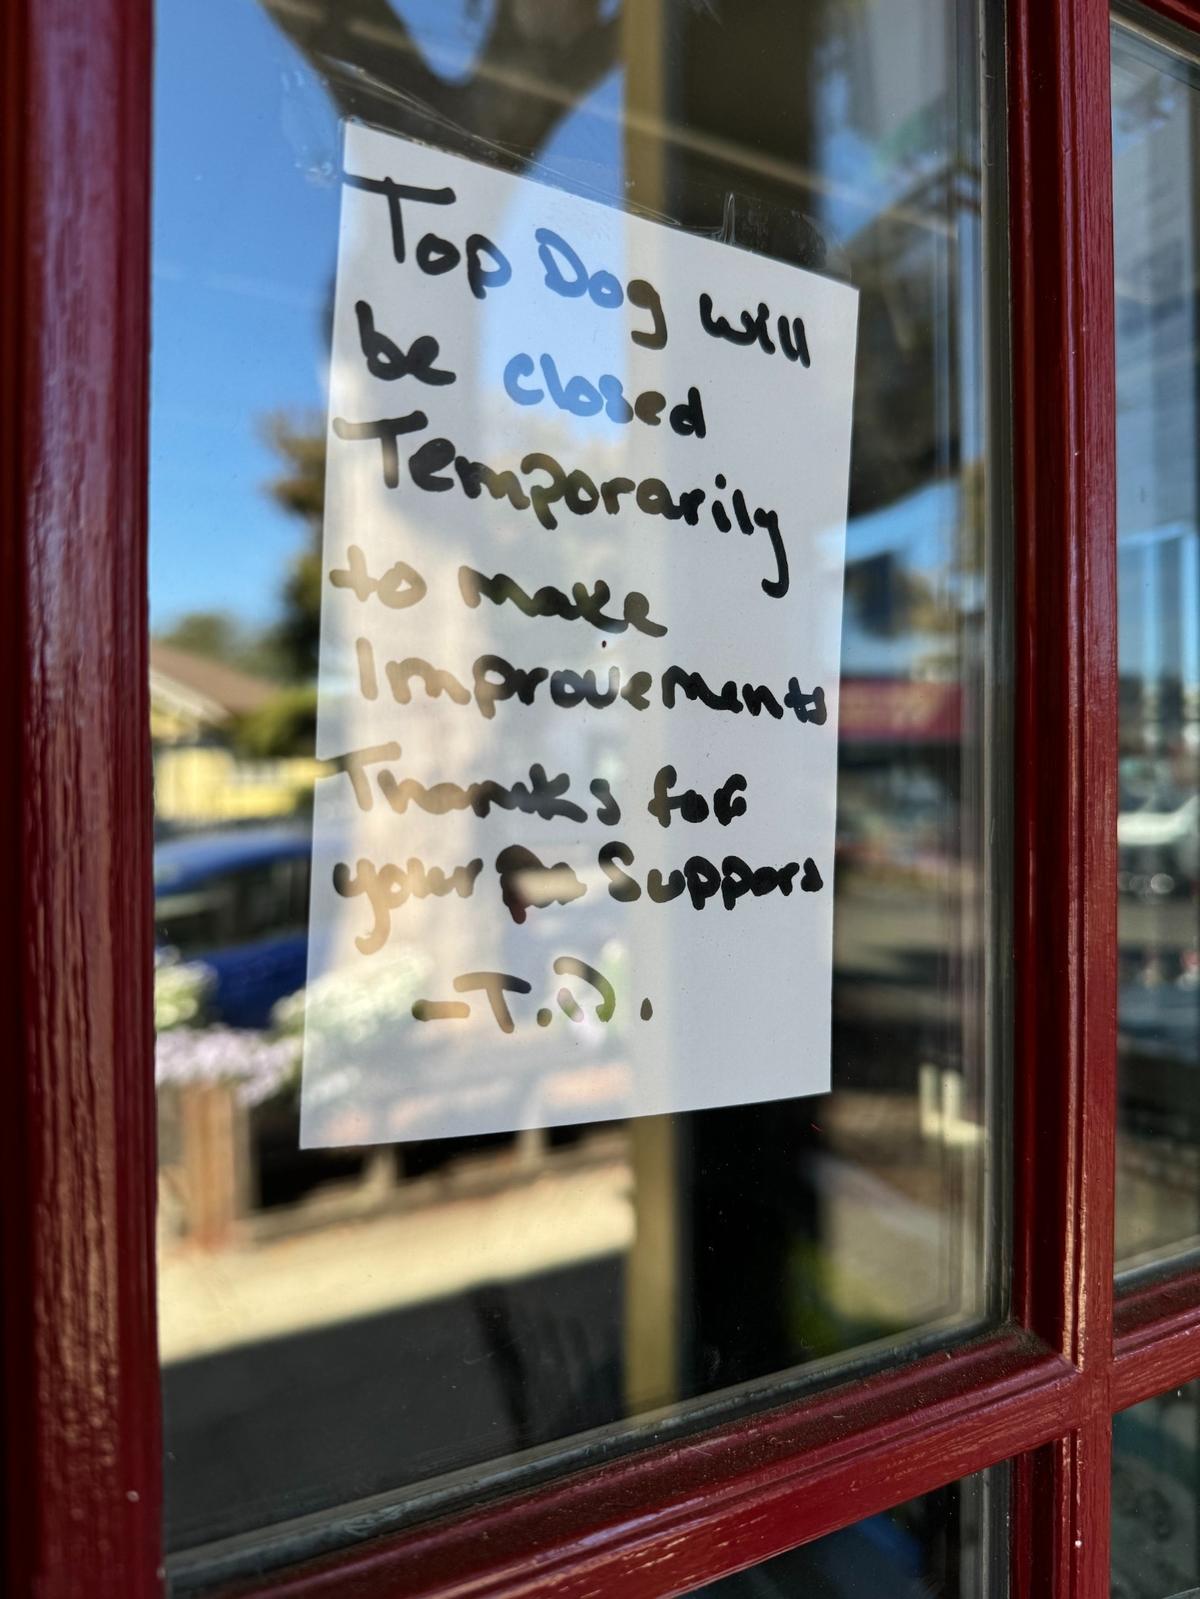 Top Dog will
be closed
Temporarily
to make
Improvements
Thanks for
your Support
-T.D.